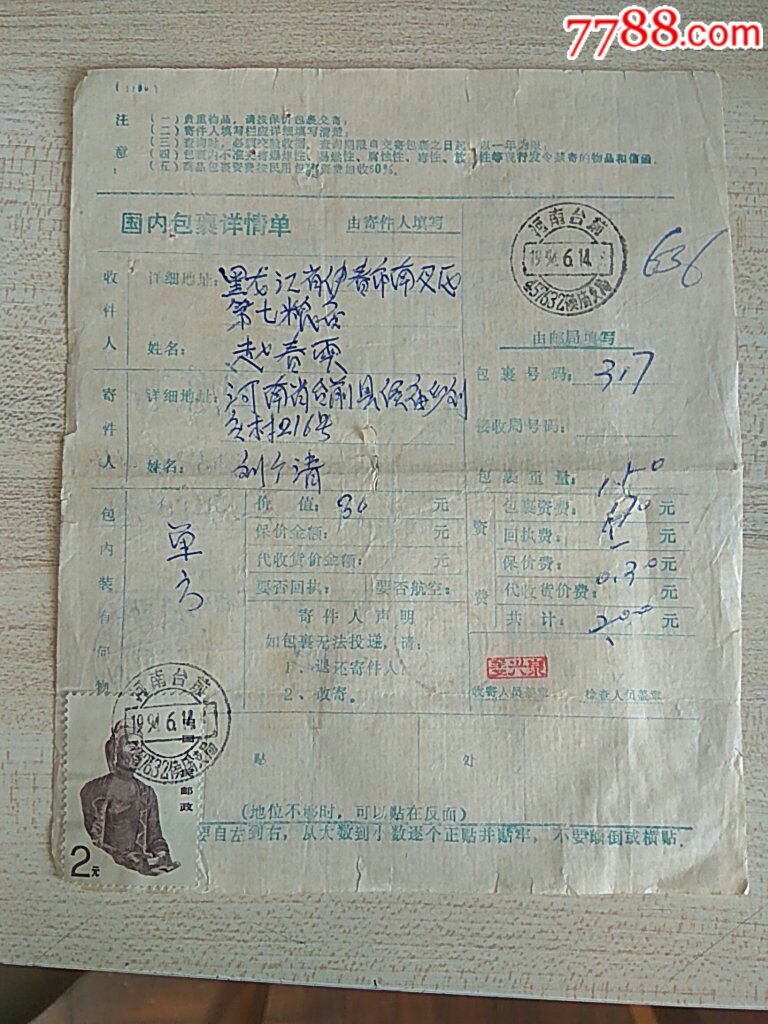 7788.com
注意:
(一)贵重物品,请按保价包裹交寄;
(二)寄件人填写栏应详细填写清楚;
(三)查询时,必须交验收据,查询期限自交寄包裹之日起,以一年为限;
(四)包裹内不准夹寄爆炸性、易燃性、腐蚀性、毒性、放 性等现行发令禁寄的物品和信函
(五)商品包裹资费按民用包裹资费加收50%.
国内包裹详情单
由寄件人填写
河南台前
1994.6.14
457632
636
收件人
详细地址:黑龙江省伊春市南叉区
第七粮店
姓名:赵春
由邮局填写
包裹号码:317
寄件人
详细地址:河南省台前县侯庙乡刘
村216号
接收局号码:
姓名:刘 清
包裹重量:150
包内装有何物
单
价值:30元
保价金额:元
代收货价金额:元
要否回执:
要否航空:
资费
包裹资费:170元
回执费:元
保价费:元
代收货价费:0.30元
共计:2.00元
寄件人声明
如包裹无法投递,请:
1、退还寄件人
2、改寄.
收寄人员盖章
检查人员盖章
河南台前
1994.6.14
457632
中国邮政
2元
贴 处
(地位不够时,可以贴在反面)
要自左到右,从大数到小数逐个正贴并贴牢,不要颠倒或横贴.